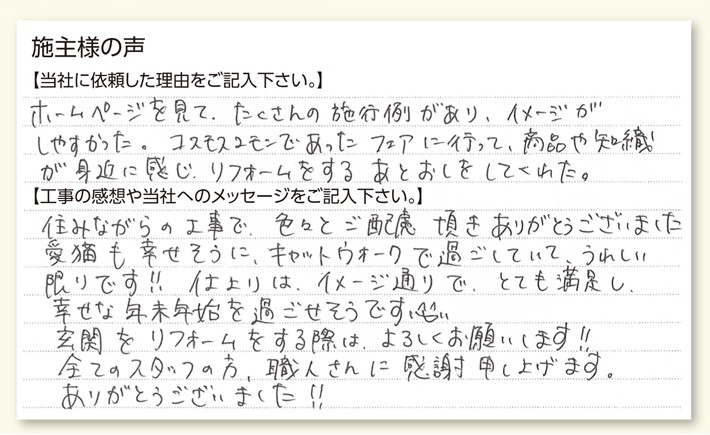 施主様の声
【当社に依頼した理由をご記入下さい。】
ホームページを見て、たくさんの施行例があり、イメージが
しやすかった。コスモスコモンであったフェアに行って、商品や知織
が身近に感じ、リフォームをするあとおしをしてくれた。
【工事の感想や当社へのメッセージをご記入下さい。】
住みながらの工事で、色々とご配慮頂きありがとうございました
愛猫も幸せそうに、キャットウォークで過ごしていて、うれしい
限りです!! 仕上りは、イメージ通りで、とても満足し、
幸せな年末年始を過ごせそうです
玄関をリフォームをする際は、よろしくお願いします!!
全てのスタッフの方、職人さんに感謝申し上げます。
ありがとうございました!!